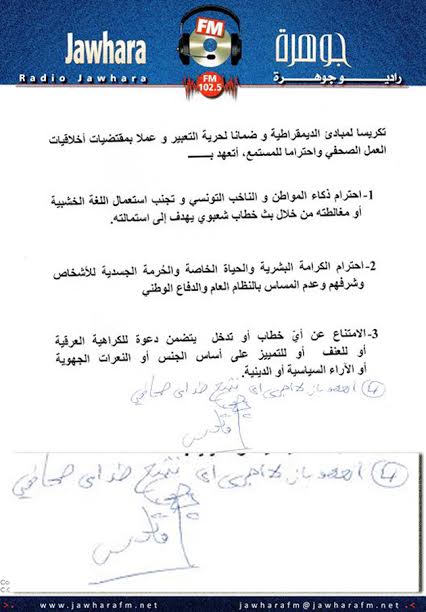 Jawhara
FM
جوهرة
Radio Jawhara
FM
102.5
راديو جوهرة
تكريسا لمبادئ الديمقراطية و ضمانا لحرية التعبير و عملا بمقتضيات أخلاقيات
العمل الصحفي واحتراما للمستمع، أتعهد بـــــ
1- احترام ذكاء المواطن و الناخب التونسي و تجنب استعمال اللغة الخشبية
أو مغالطته من خلال بث خطاب شعبوي يهدف إلى استمالته.
2- احترام الكرامة البشرية والحياة الخاصة والحُرمة الجسدية للأشخاص
وشرفهم وعدم المساس بالنظام العام والدفاع الوطني
3- الامتناع عن أيّ خطاب أو تدخل يتضمن دعوة للكراهية العرقية
أو للعنف أو للتمييز على أساس الجنس أو النعرات الجهوية
أو الآراء السياسية أو الدينية.
4 أتعهد بان لا اجري اي تتبع ضد اي صحافي
4 أتعهد بان لا اجري اي تتبع ضد اي صحافي
Co
www.jawharafm.net
jawharafm@jawharafm.net